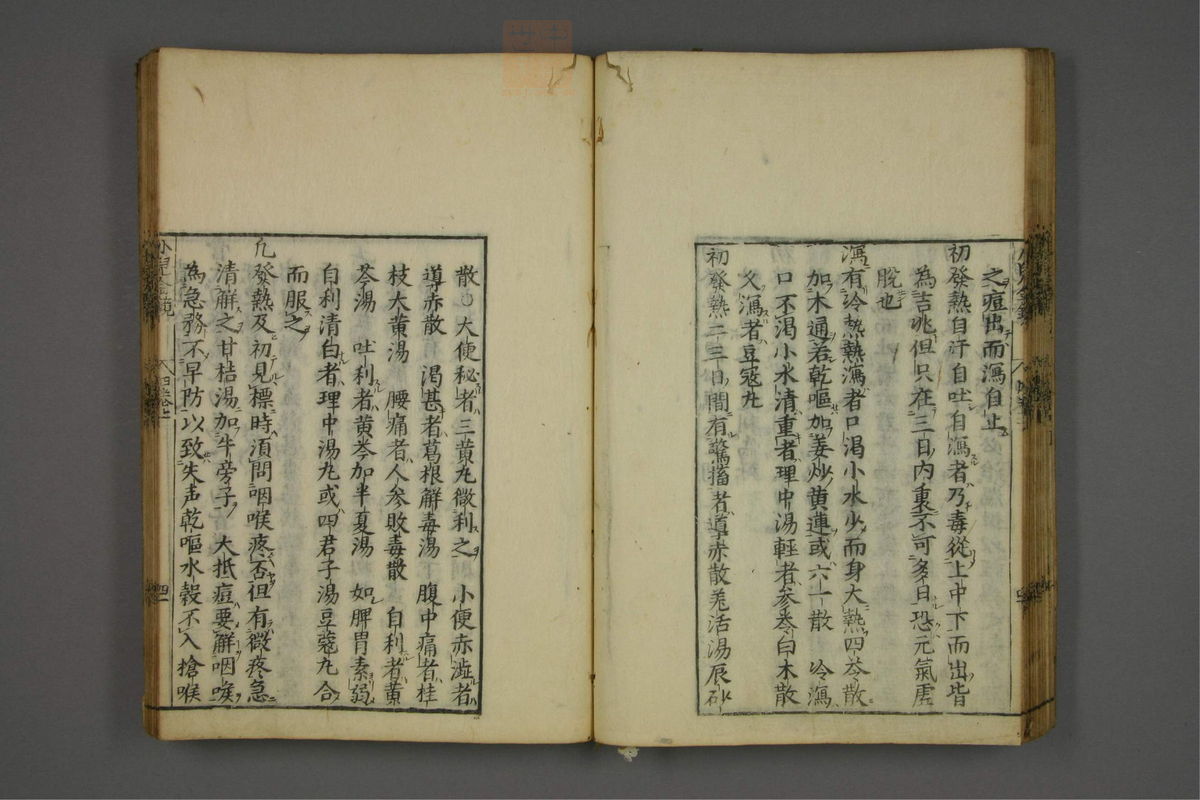 之痘出而瀉自止
初發熱自汗自吐自瀉者乃毒從上中下而出皆
為吉兆但只在三日内裏不可多日恐元氣虗
脫也
瀉有冷熱熱瀉者口渴小水少而身大熱四苓散
加木通若乾嘔加姜炒黃連或六一散 冷瀉
口不渴小水清重者理中湯輕者參苓白木散
久瀉者豆寇丸
初發熱二三日間有驚搐者導赤散羗活湯辰砂
散 大便秘者三黃丸微利之 小便赤澁者
導赤散 渴甚者葛根解毒湯 腹中痛者桂
枝大黃湯 腰痛者人參敗毒散 自利者黃
芩湯 吐利者黃芩加半夏湯 如脾胃素弱
自利清白者理中湯丸或四君子湯豆蔻丸合
而服之
凡發熱及初見標時須問咽喉疼否但有微疼急
清解之甘桔湯加牛旁子 大抵痘要解咽喉
為急務不早防以致失声乾嘔水穀不入搶喉